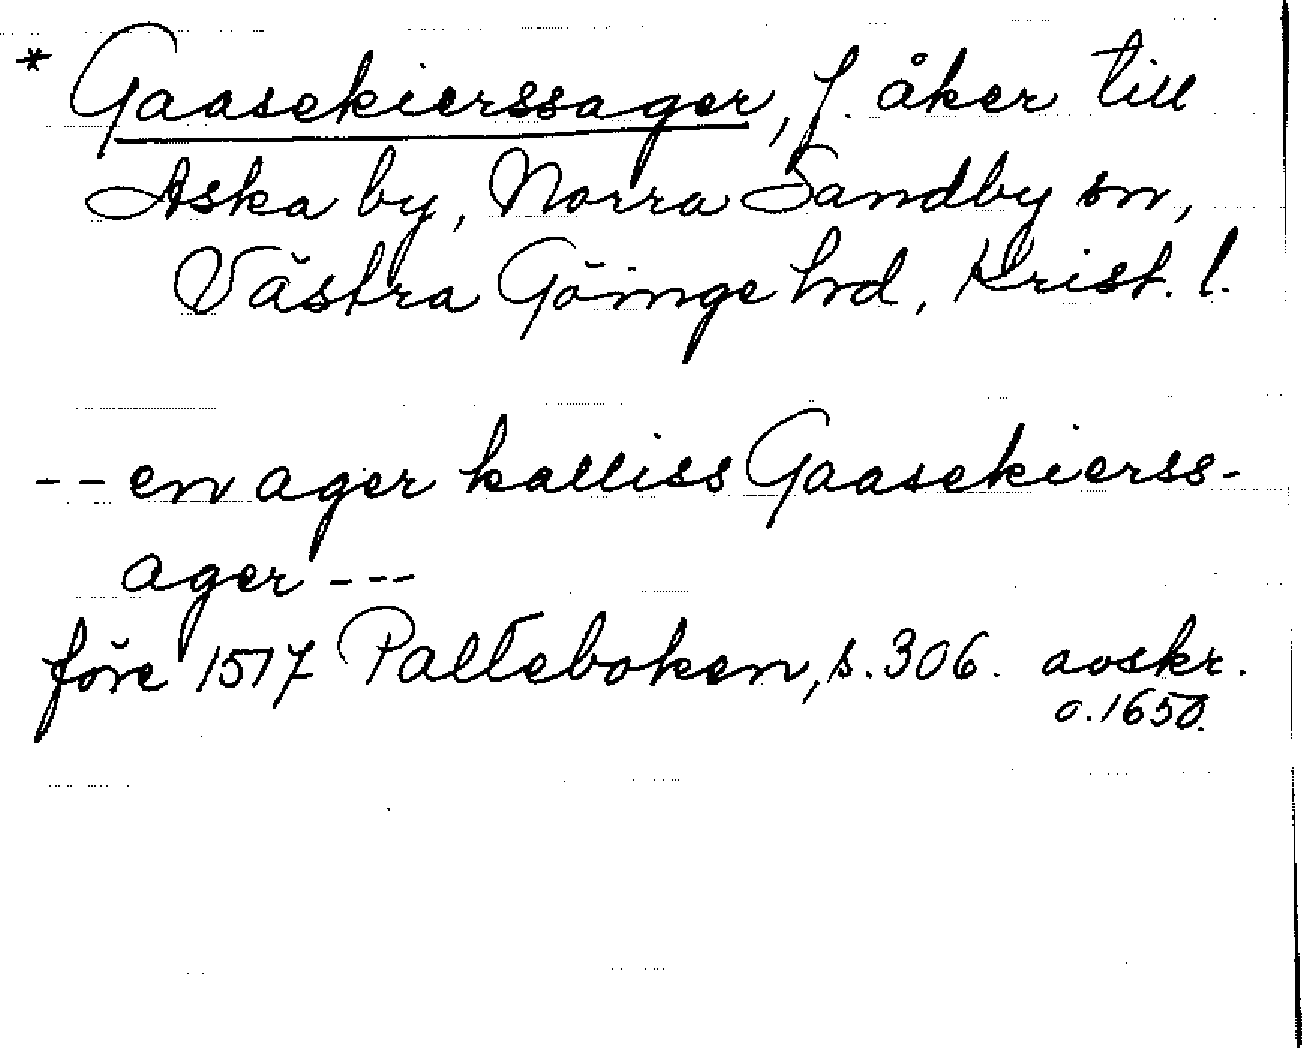 * Gaasekierssager, f. åker till
Aska by, Norra Sandby sn,
Västra Göinge hd, Krist. l.
-- en ager kalliss Gaasekierss-
ager ---
före 1517 Palteboken, s. 306. avskr.
o. 1650.